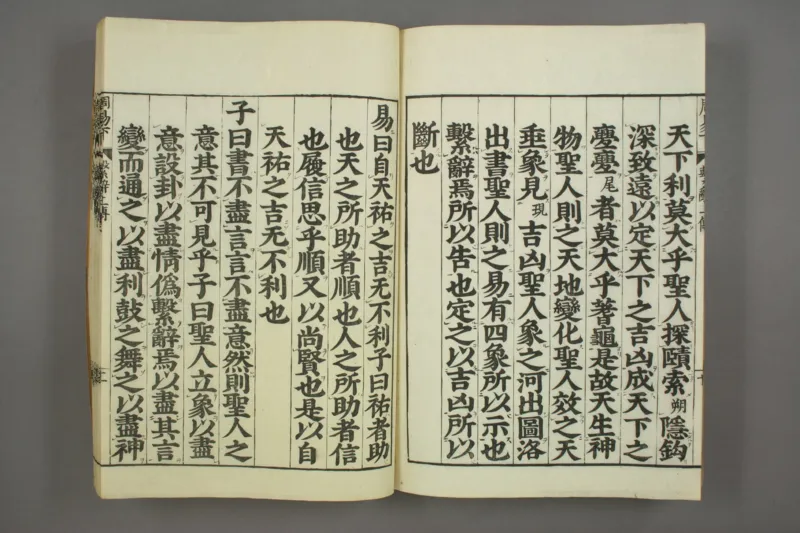 天下利莫大乎聖人探賾索朔隱鈎
深致遠以定天下之吉凶成天下之
亹亹尾者莫大乎蓍龜是故天生神
物聖人則之天地變化聖人效之天
垂象見現吉凶聖人象之河出圖洛
出書聖人則之易有四象所以示也
繫辭焉所以告也定之以吉凶所以
斷也
易曰自天祐之吉无不利子曰祐者助
也天之所助者順也人之所助者信
也履信思乎順又以尚賢也是以自
天祐之吉无不利也
子曰書不盡言言不盡意然則聖人之
意其不可見乎子曰聖人立象以盡
意設卦以盡情僞繫辭焉以盡其言
變而通之以盡利鼓之舞之以盡神
周易下 繫辭上傳